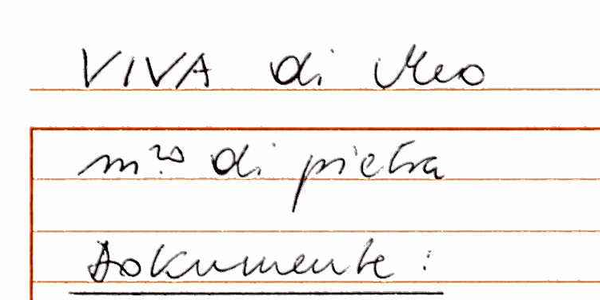 VIVA di Meo
m.ro di pietra
Dokumente: